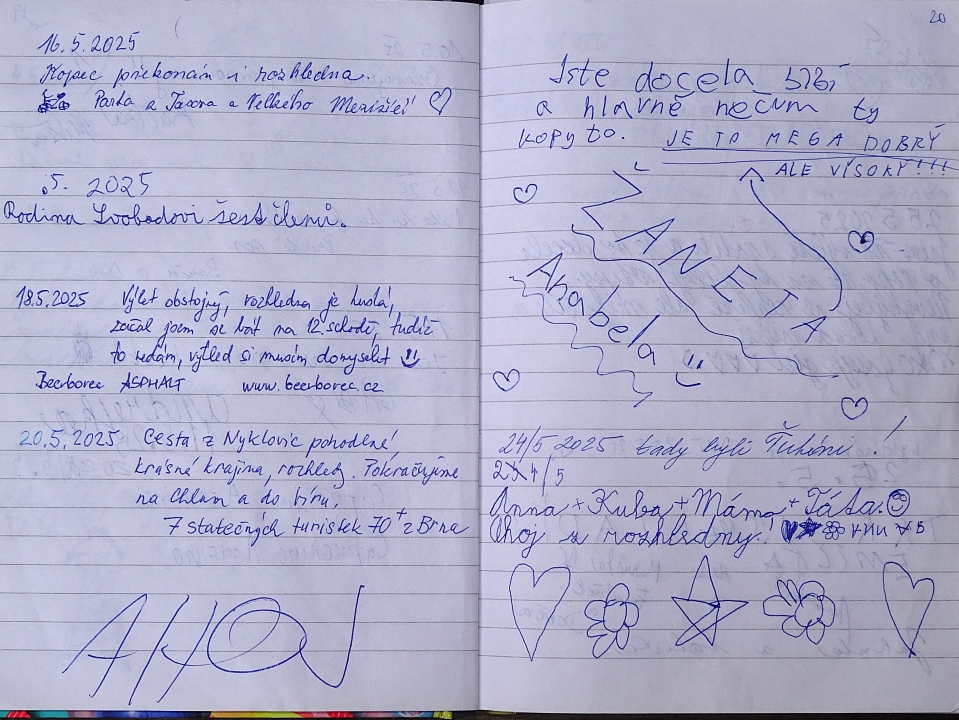 16.5.2025
Kopec překonán i rozhledna.
Parta z Tasova a Velkého Meziříčí
.5. 2025
Rodina Svobodovi šest členů.
18.5.2025 Výlet obstojný, rozhledna je hustá,
začal jsem se bát na 12. schodě, tudíž
to vzdám, výhled si musím domyslet
Beerborec ASPHALT www.beerborec.cz
20.5.2025 Cesta z Nyklovic pohodlné,
krásné krajina, rozhledy. Pokračujeme
na Chlum a do
7 statečných turistek 70+ z Brna
AHOJ
20
Jste docela
a hlavně nečum ty
kopyto. JE TO MEGA DOBRÝ
ALE VÝSOKÝ!!!
ŽANETA
Anabela
24/5 2025 tady byli !
24/5
Anna + Kuba + Máma + Táta.
Ahoj z rozhledny!